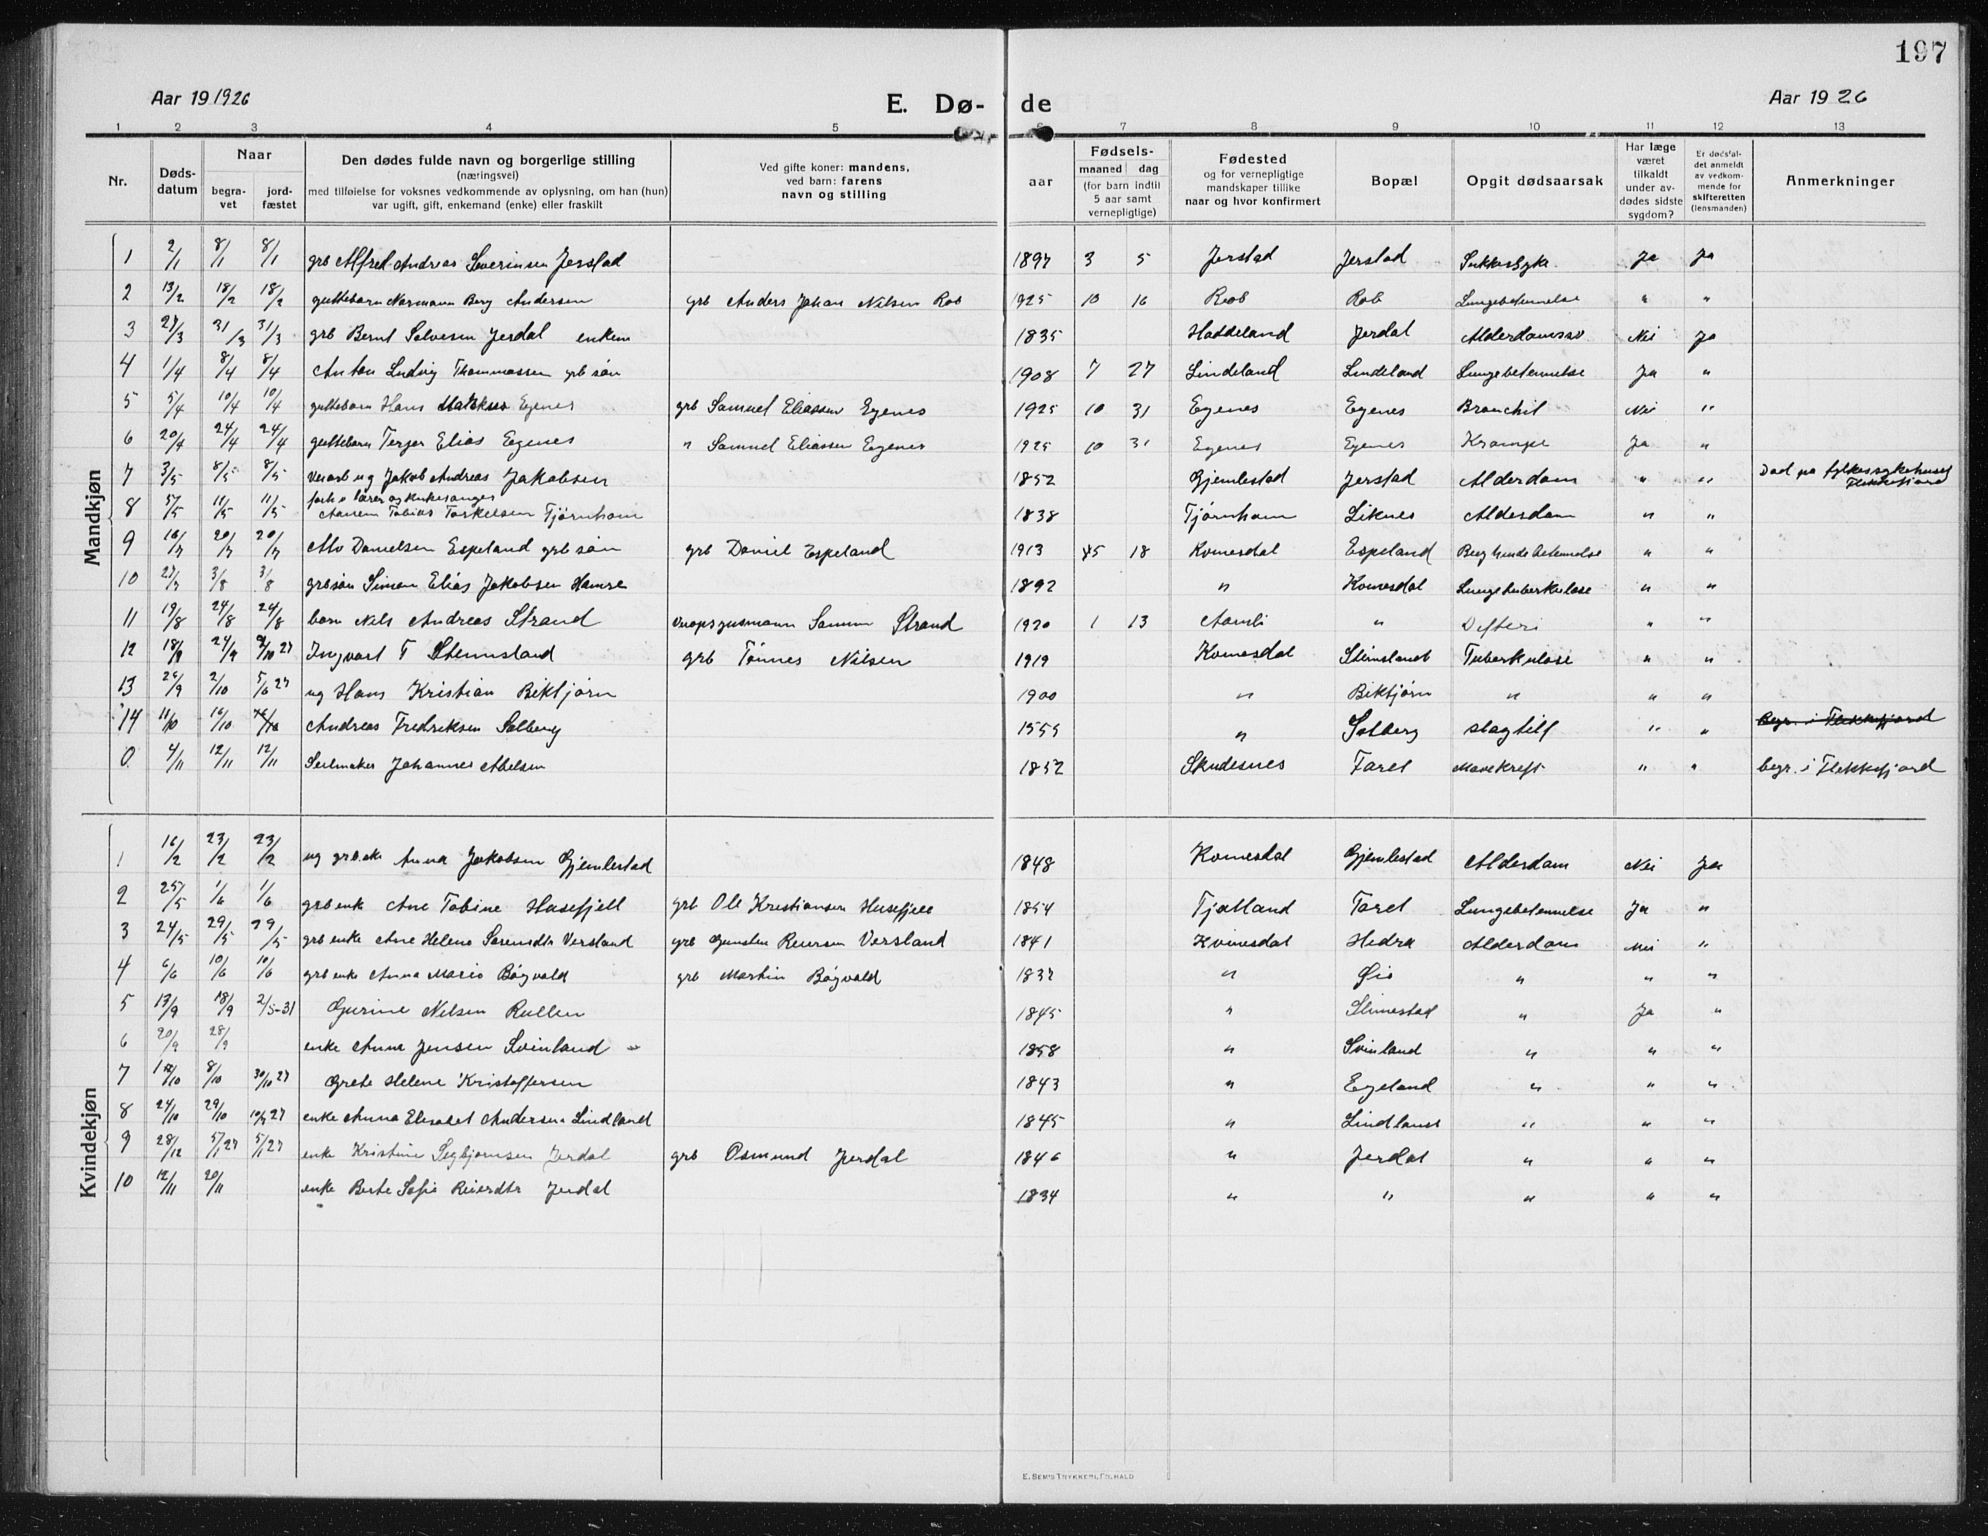 197
Aar 19 1926 E. Dø- de Aar 1926
1 2 3 4 5 7 8 9 10 11 12 13
Nr. Døds-datum Naar begra-vet jord-fæstet Den dødes fulde navn og borgerlige stilling (næringsvei) med tilføielse for voksnes vedkommende av oplysning, om han (hun) var ugift, gift, enkemand (enke) eller fraskilt Ved gifte koner: mandens, ved barn: farens navn og stilling aar Fødsels- maaned dag (for barn indtil 5 aar samt vernepligtige) Fødested og for vernepligtige mandskaper tillike naar og hvor konfirmert Bopæl Opgit dødsaarsak Har læge været tilkaldt under av-dødes sidste sygdom? Er dødsfal-det anmeldt av vedkom-mende for skifteretten (lensmanden) Anmerkninger
Mandkjøn
1 2/1 8/1 8/1 grb Alfred Andreas Severinsen Jerstad 1897 3 5 Jerstad Jerstad Sukkersyke Ja Ja
2 13/2 18/2 18/2 guttebarn Normann Berg Andersen grb Anders Johan Nilsen Rob 1925 10 16 Rob Rob Lungebetennelse " "
3 27/3 31/3 31/3 grb Bernt Solvesen Jerdal enkem 1835 Haddeland Jerdal Alderdomssv. Nei Ja
4 1/4 8/4 8/4 Anton Ludvig Thommassen grb søn 1908 7 27 Lindeland Lindeland Lungebetennelse Ja "
5 5/4 10/4 10/4 guttebarn Hans Egenes grb Samuel Eliassen Egenes 1925 10 31 Egenes Egenes Bronchit Nei "
6 20/4 24/4 24/4 guttebarn Terjer Elias Egenes " Samuel Eliassen Egenes 1925 10 31 Egenes Egenes Krampe Ja "
7 3/5 8/5 8/5 ug Jakob Andreas Jakobsen 1852 Gjemlestad Jerstad Alderdom " " Død på fylkessykehuset Flekkefjord
8 5/5 11/5 11/5 forh. lærer og kirkesanger Tobias Torkelsen Tjørnhom 1838 Tjørnhom Liknes Alderdom " "
9 16/7 20/7 20/7 Alv Danielsen Espeland grb søn grb Daniel Espeland 1913 18 Kvinesdal Espeland " "
10 27/7 3/8 3/8 grbsøn Simon Elias Jakobsen Hamre 1892 " Kvinesdal Lungetuberkulose " "
11 19/8 24/8 24/8 barn Nils Andreas Strand Strand 1920 1 13 Aamli " Difteri " "
12 18/9 24/9 27 Ingvart T Stemsland grb Tønnes Nilsen 1919 Kvinesdal Stemsland Tuberkulose " "
13 25/9 2/10 5/6 27 ug Hans Kristian Biktjørn 1900 " Biktjørn " " "
14 11/10 16/10 16/10 Andreas Fredriksen Solberg " Solberg slagtilf " " begr. i Flekkefjord
0 4/11 12/11 12/11 Seilmaker Johannes Abelsen 1852 Skudesnes Faret Mavekreft " " begr. i Flekkefjord
Kvindekjøn
1 16/2 23/2 23/2 ug grb.enke Anna Jakobsen Gjemlestad 1848 Kvinesdal Gjemlestad Alderdom Nei Ja
2 25/5 1/6 1/6 grb enke Ane Tobine Husefjell grb Ole Kristiansen Husefjell 1854 Tjotland Faret Lungebetennelse Ja "
3 24/5 29/5 29/5 grb enke Ane Helene Sørensdtr Versland grb Gunsten Reiersen Versland 1841 Kvinesdal Hidra Alderdom Nei "
4 6/6 10/6 10/6 grb enke Anna Marie Bøgvald grb Martin Bøgvald 1837 " Øie " " "
5 13/9 18/9 2/5-31 Gurine Nilsen Rullen 1845 " Slimestad " Ja "
6 20/9 28/9 enke Anna Jensen Svinland 1858 " Svinland " " "
7 8/10 30/10 27 Grete Helene Kristoffersen 1843 " Egeland " " "
8 24/10 29/10 10/7 27 enke Anna Elisabet Andersen Lindland 1845 " Lindland " " "
9 28/12 5/1 27 5/1 27 enke Kristine Segbjørnsen Jerdal grb Osmund Jerdal 1846 " Jerdal " " "
10 12/11 20/11 enke Berte Sofie Reiersdtr Jerdal 1834 " " " " "
E. SEM'S TRYKKERI, FR.HALD